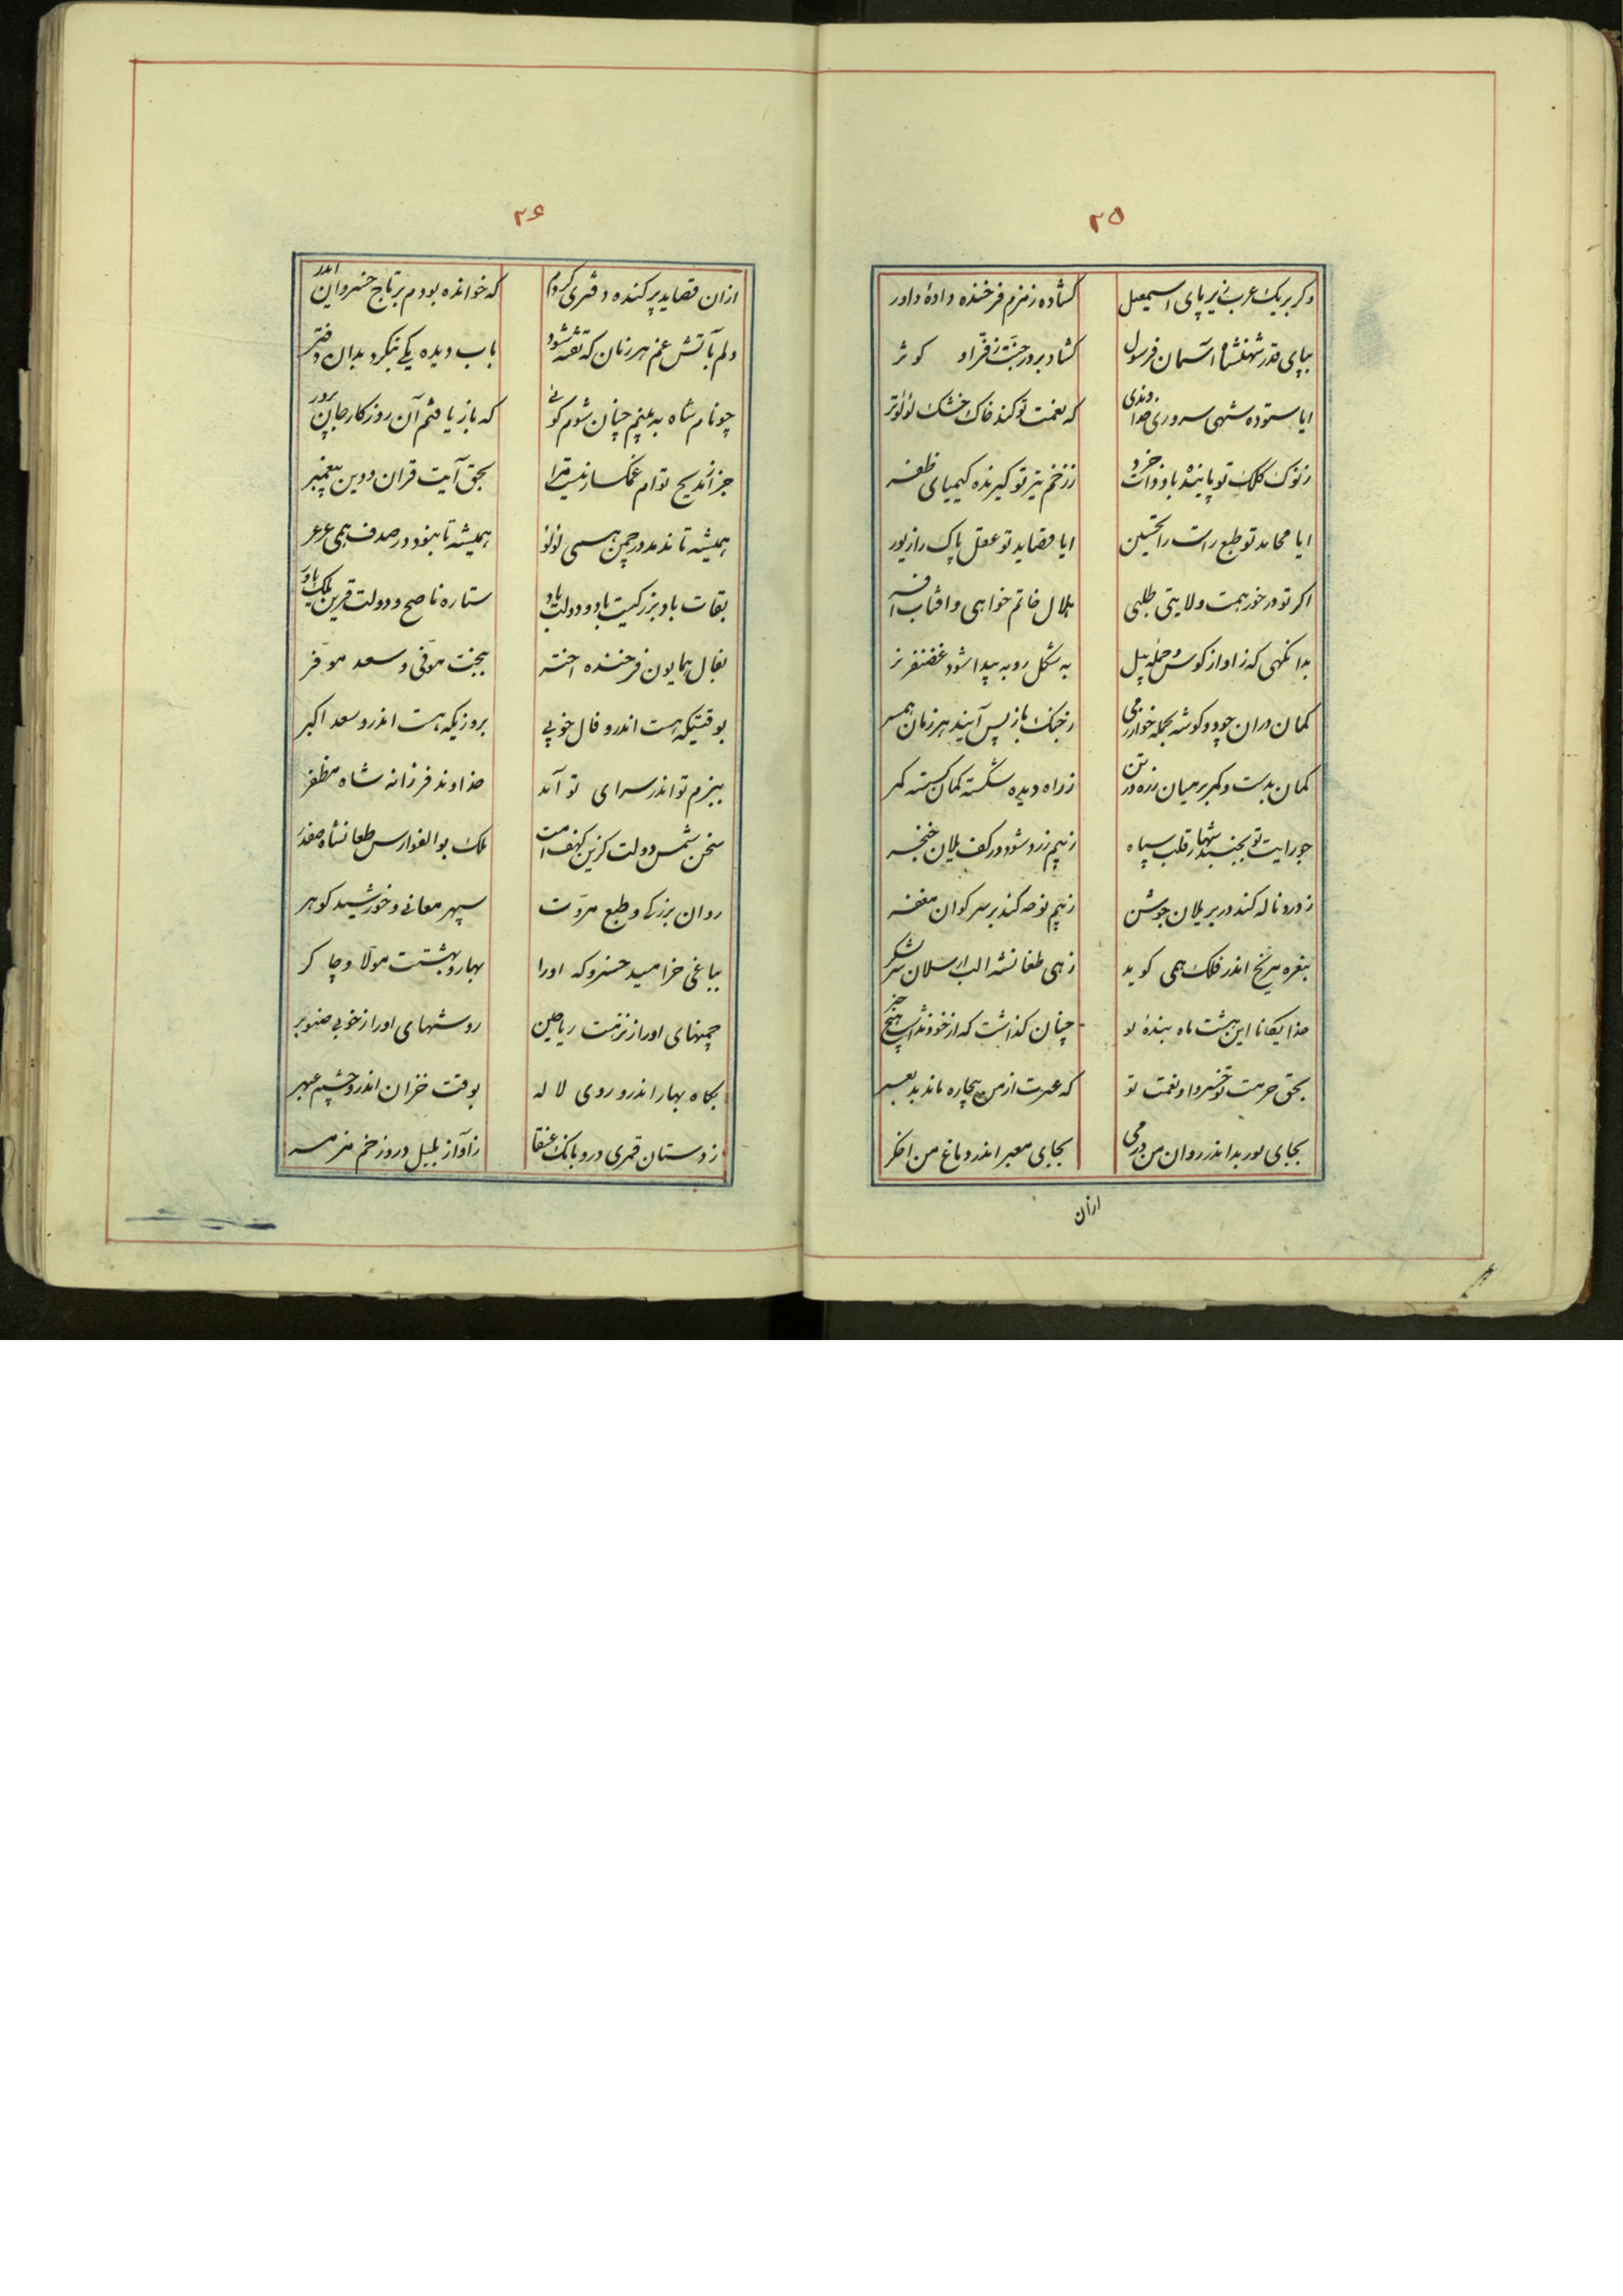 ۲۵
وکر بریک عرب زیر پای اسمعیل کشاده زمزم فرخنده دادهٔ داور
بپای قدر شهنشاه آسمان فرسول کشاد بر در جنت ز فر او کوثر
ایا ستوده شهی سروری خداوندی که نعمت تو کند خاک خشک لؤلؤ تر
ز نوک کلک تو پاینده باد ذات خرد ز زخم تیر تو کیرنده کیمیای ظفر
ایا محامد تو طبع راست را تحسین ایا قصاید تو عقل پاک را زیور
اکر تو در خور همت ولایتی طلبی هلال خاتم خواهی و افتاب افسر
بدانکهی که ز اواز کوس و حمله پیل به شکل روبه پیدا شود غضنفر نر
کمان دران چو دو کوشه بحمله خوارزمی ز جنک باز پس آیند هر زمان همسر
کمان بدست و کمر بر میان زره در تن ز راه دیده شکسته کمان کسسته کمر
چو رایت تو بجنبد شها ز قلب سپاه ز بیم زرد شود در کف یلان خنجر
ز درد ناله کند در بر یلان جوشن ز بیم نوحه کند بر سر کوان مغفر
بنعره مریخ اندر فلک همی کوید زهی طغانشه الب ارسلان شیر شکر
خدایکانا این هشت ماه بندهٔ تو چنان کذاشت که از خود نداشت هیچ خبر
بحق حرمت تو خسروا و نعمت تو که عبرت از من بیچاره ماند بد بعبر
بجای نور بد اندر روان من درمی بجای معبر اندر دماغ من اخکر
ازان
۲۶
ازان قصاید پر کنده دفتری کردم که خوانده بودم بر تاج خسروان اندر
دلم بآتش غم هر زمان که تفته شود باب دیده یکی بنکرد بدان دفتر
چو نام شاه به بینم چنان شوم کوئی که باز یافتم آن روزکار جان پرور
جز از مدیح توام غمکسار نیست مرا بحق آیت قران و دین پیغمبر
همیشه تا ندمد در چمن همی لؤلؤ همیشه تا نبود در صدف همی عرعر
بقات باد بزرکیت باد و دولت باد ستاره ناصح و دولت قرین ملک یاور
بفال همایون فرخنده اختر ببخت موفق و سعد موفر
بوقتیکه هست اندرو فال خوبی بروزیکه هست اندرو سعد اکبر
ببزم تو اندر سرای تو آمد خداوند فرزانه شاه مظفر
سخن شمس دولت کزین کهف امت ملک بوالفوارس طغانشاه صفدر
روان بزرکی و طبع مروت سپهر معانی و خورشید کوهر
بباغی خرامید خسرو که اورا بهار و بهشتست مولا و چاکر
چمنهای اورا ز نزهت ریاحین روشهای اورا ز خوبی صنوبر
بکاه بهار اندرو روی لاله بوقت خزان اندرو چشم عبهر
ز دستان قمری درو بانک عنقا ز آواز بلبل درو زخم مزمر